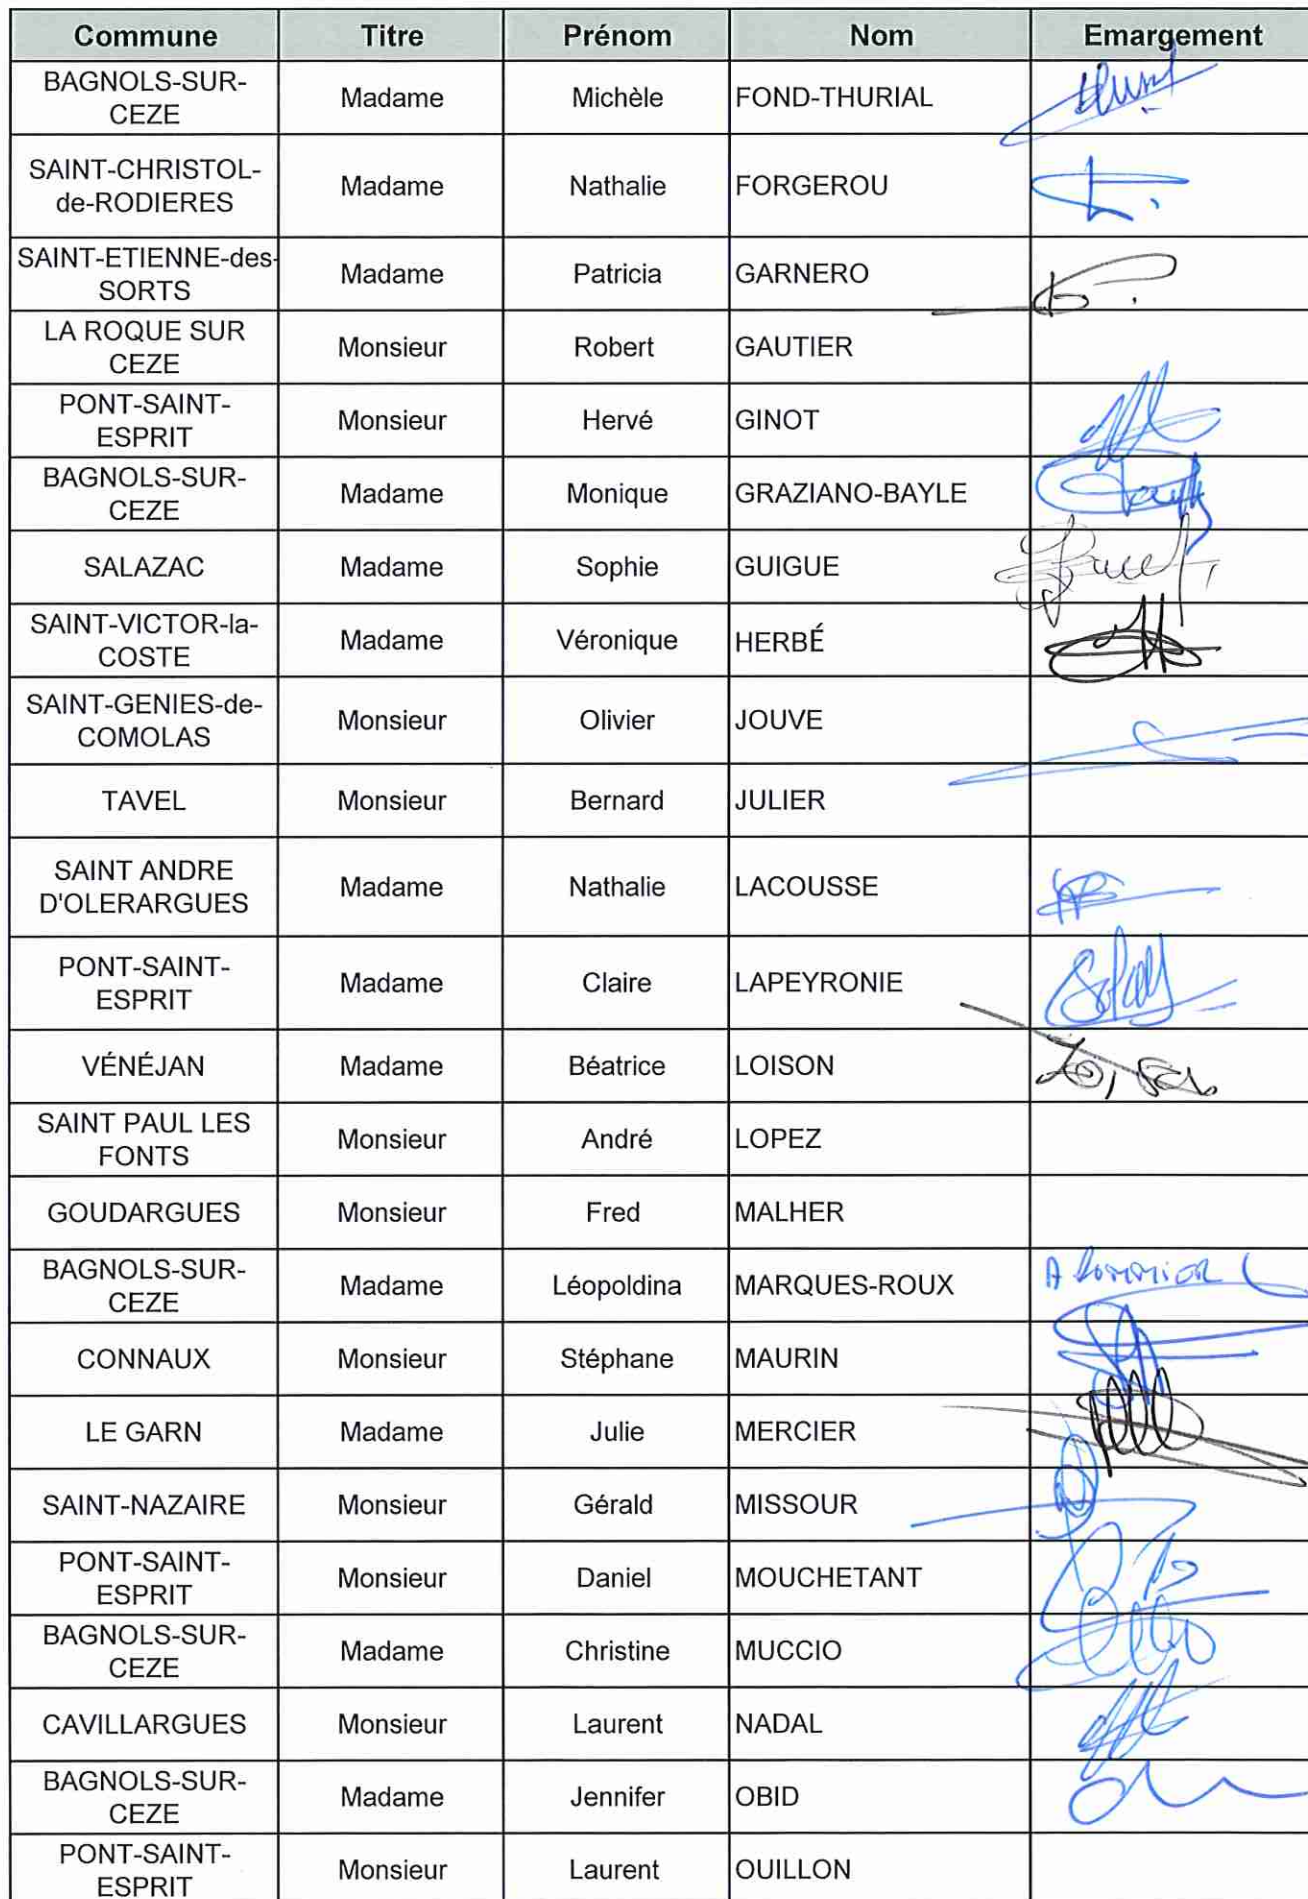 Commune Titre Prénom Nom Emargement
BAGNOLS-SUR-
CEZE Madame Michèle FOND-THURIAL
SAINT-CHRISTOL-
de-RODIERES Madame Nathalie FORGEROU
SAINT-ETIENNE-des-
SORTS Madame Patricia GARNERO
LA ROQUE SUR
CEZE Monsieur Robert GAUTIER
PONT-SAINT-
ESPRIT Monsieur Hervé GINOT
BAGNOLS-SUR-
CEZE Madame Monique GRAZIANO-BAYLE
SALAZAC Madame Sophie GUIGUE
SAINT-VICTOR-la-
COSTE Madame Véronique HERBÉ
SAINT-GENIES-de-
COMOLAS Monsieur Olivier JOUVE
TAVEL Monsieur Bernard JULIER
SAINT ANDRE
D'OLERARGUES Madame Nathalie LACOUSSE
PONT-SAINT-
ESPRIT Madame Claire LAPEYRONIE
VÉNÉJAN Madame Béatrice LOISON
SAINT PAUL LES
FONTS Monsieur André LOPEZ
GOUDARGUES Monsieur Fred MALHER
BAGNOLS-SUR-
CEZE Madame Léopoldina MARQUES-ROUX
CONNAUX Monsieur Stéphane MAURIN
LE GARN Madame Julie MERCIER
SAINT-NAZAIRE Monsieur Gérald MISSOUR
PONT-SAINT-
ESPRIT Monsieur Daniel MOUCHETANT
BAGNOLS-SUR-
CEZE Madame Christine MUCCIO
CAVILLARGUES Monsieur Laurent NADAL
BAGNOLS-SUR-
CEZE Madame Jennifer OBID
PONT-SAINT-
ESPRIT Monsieur Laurent OUILLON